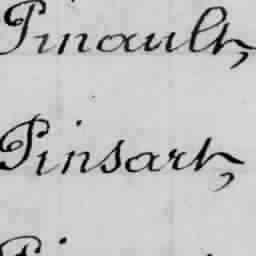 Pinault,
Pinsart,